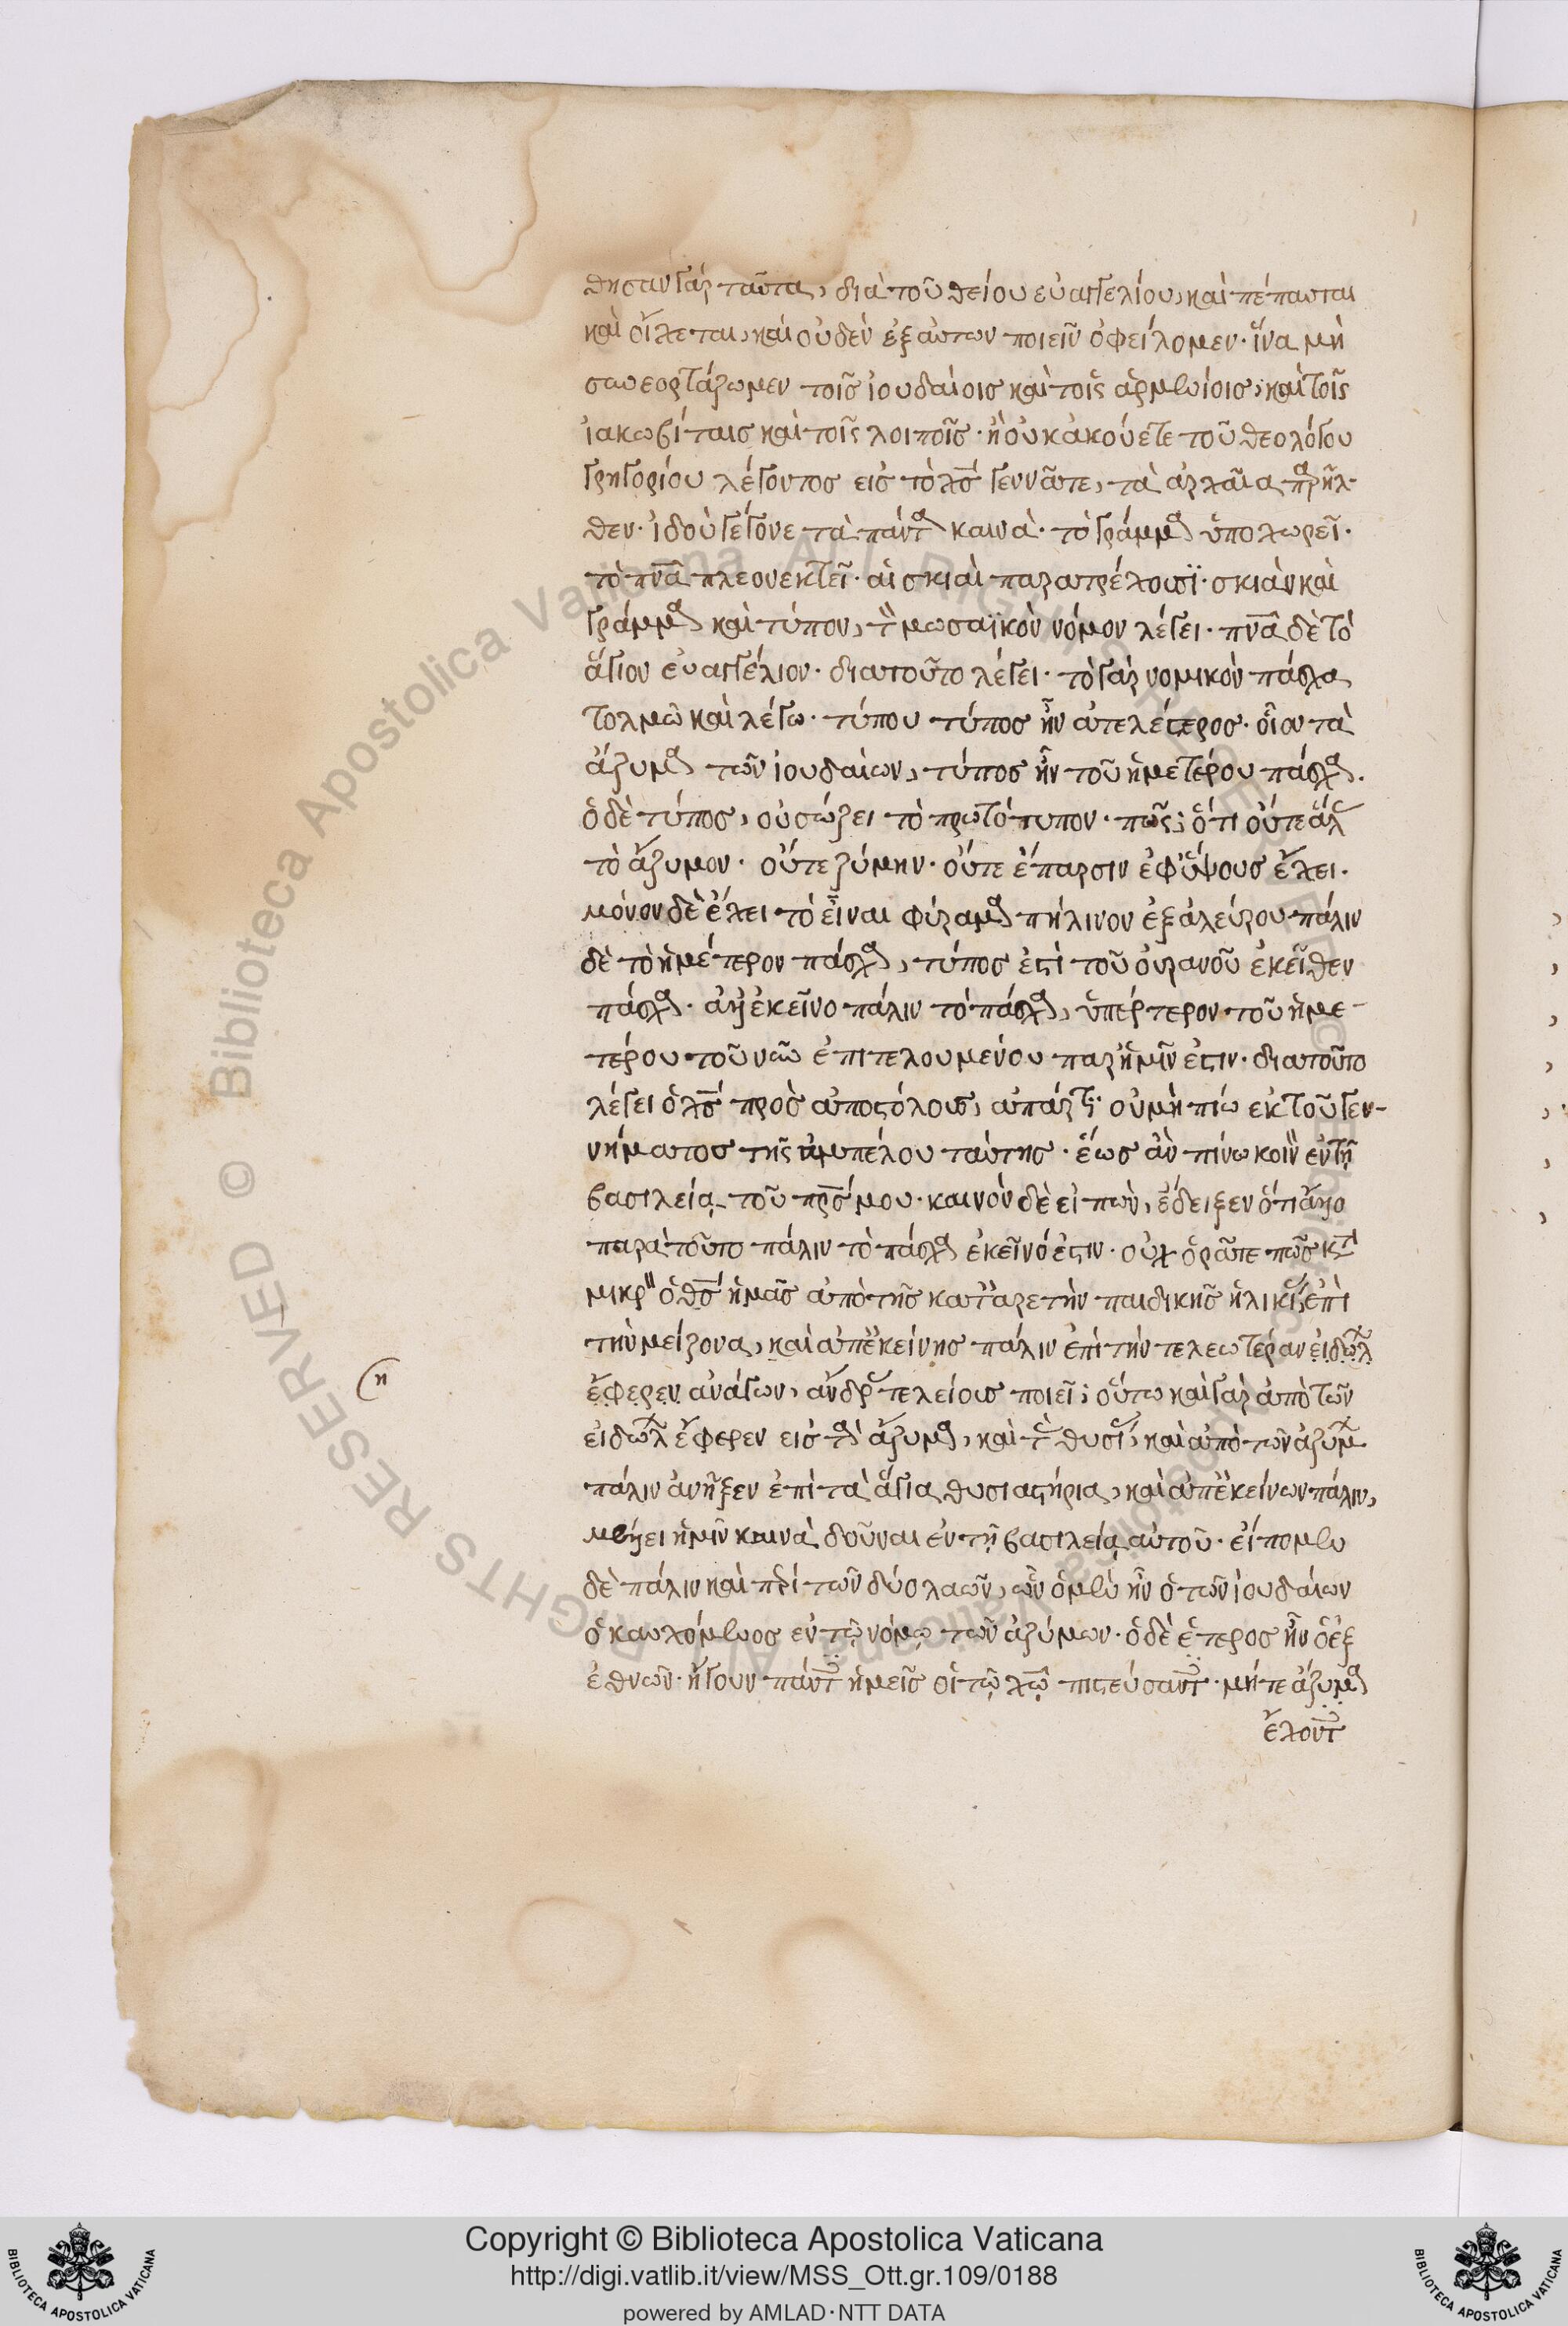 θησαν γὰρ ταῦτα, διὰ τοῦ θείου εὐαγγελίου, καὶ πέπαυται
καὶ οἴχεται, καὶ οὐδὲν ἐξ αὐτων ποιεῖν ὀφείλομεν· ἵνα μὴ
συνεορτάζωμεν τοῖς ἰουδαίοις καὶ τοῖς ἀρμενίοις, καὶ τοῖς
ἰακωβίταις καὶ τοῖς λοιποῖς· ἢ οὐκ ἀκούετε τοῦ θεολόγου
γρηγορίου λέγοντος εἰς τὸ χς γεννᾶται, τὰ ἀρχαῖα πρῆλ
θεν· ἰδοὺ γέγονε τὰ πάντα καινὰ· τὸ γράμμα ὑποχωρεῖ·
τὸ πνα πλεονεκτεῖ· αἱ σκιαὶ παρατρέχουσϊ· σκιὰν καὶ
γράμμα καὶ τύπον, τ μωσαϊκὸν νόμον λέγει· πνα δὲ τὸ
ἅγιον εὐαγγέλιον· διατοῦτο λέγει· τὸ γὰρ νομικὸν πάσχα
τολμῶ καὶ λέγω· τύπου τύπος ἦν ἀτελέστερος· οἷον τὰ
ἄζυμα τῶν ἰουδαίων, τύπος ἦν τοῦ ἡμετέρου πάσχα·
ὁ δὲ τύπος, οὐ σώζει τὸ πρωτότυπον· πῶς; ὅτι οὔτε ἅλ
τὸ ἄζυμον· οὔτε ζύμην· οὔτε ἔπαρσιν ἐφ ὕψους ἔχει·
μόνον δὲ ἔχει τὸ εἶναι φύραμα πήλινον ἐξ ἀλεύρου πάλιν
δὲ τὸ ἡμέτερον πάσχα, τύπος ἐστὶ τοῦ οὐρανοῦ ἐκεῖθεν
πάσχα· ἀλλ ἐκεῖνο πάλιν τὸ πάσχα, ὑπέρτερον τοῦ ἡμε-
τέρου τοῦ νῦν ἐπιτελουμένου παρ ἡμῖν ἐστιν· διατοῦτο
λέγει ὁ χς πρὸς ἀποστόλους, ἀπάρτι· οὐ μὴ πίω ἐκ τοῦ γεν-
νήματος τῆς ἀμπέλου ταύτης· ἕως ἂν πίνω κοὶν ἐν τῆ
βασιλεία τοῦ πρς μου· καινὸν δὲ εἰπὼν, ἔδειξεν ὅτι ἄλλο
παρὰ τοῦτο πάλιν τὸ πάσχα ἐκεῖνό ἐστιν· οὐχ ὁρᾶτε πῶς κτ
μικρ ὁ θς ἡμᾶς ἀπὸ τῆς κατ ἀρετὴν παιδικῆς ἡλικί ἐπὶ
τὴν μείζονα, καὶ ἀπ ἐκείνης πάλιν ἐπὶ τὴν τελεωτέραν εἰδώλ
ἔφερεν ἀνάγων, ἄνδρ τελείους ποιεῖ; οὕτω καὶ γὰρ ἀπὸ τῶν
εἰδώλ ἔφερεν εἰς τὰ ἄζυμα, καὶ τ θυσί, καὶ ἀπὸ τῶν ἀζύμ
πάλιν ἀνῆξεν ἐπὶ τὰ ἅγια θυσιαστήρια, καὶ ἀπ ἐκείνων πάλιν,
μέλλει ἡμῖν καινὰ δοῦναι ἐν τῆ βασιλεία αὐτοῦ· εἴπομεν
δὲ πάλιν καὶ πὲρὶ τῶν δύο λαῶν, ὧν ὁ μὲν ἦν ὁ τῶν ἰουδαίων
ὁ καυχόμενος ἐν τῷ νόμῳ τῶν ἀζύμων· ὁ δὲ ἕτερος ἦν ὁ ἐξ
ἐθνῶν· ἤγουν πάντ ἡμεῖς οἱ τῷ χῷ πιστεύσαντ· μήτε ἄζυμα
ἔχοντ
(η
Copyright © Biblioteca Apostolica Vaticana
http://digi.vatlib.it/view/MSS_Ott.gr.109/0188
powered by AMLAD·NTT DATA
BIBLIOTECA APOSTOLICA VATICANA
BIBLIOTECA APOSTOLICA VATICANA